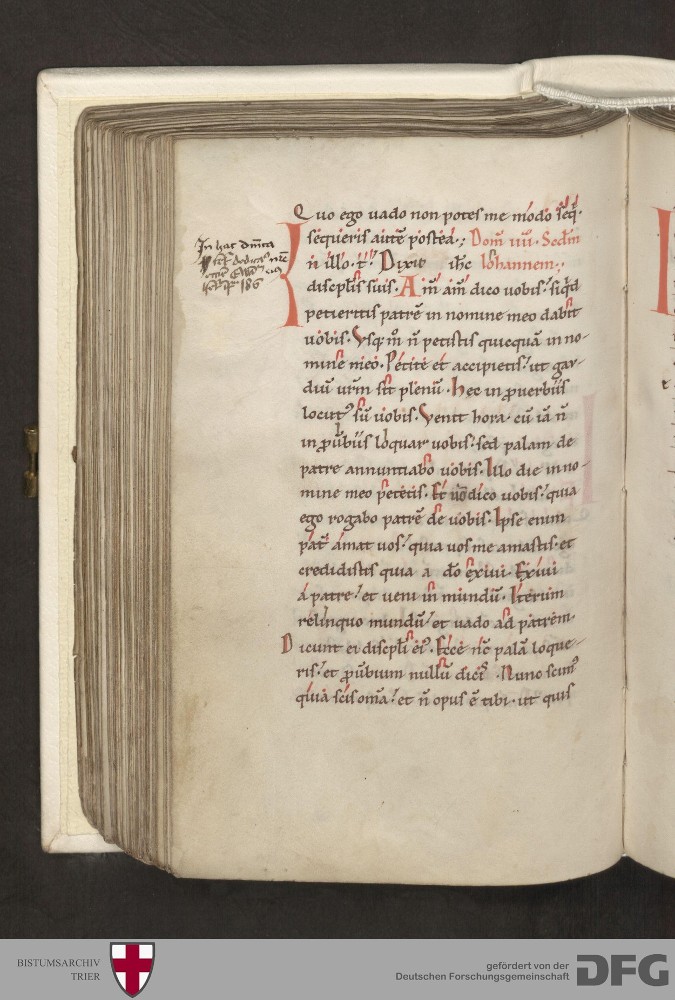 Quo ego uado non potes me modo seq̅·
sequeris aute̅ postea·; Dom̅ iiii· Scd̅m
In illo· t'· Dixit ih̅c Iohannem·;
discipl̅is suis· Am̅ am̅ dico uobis· siq̅d
petieritis patre̅ in nomine meo dabit
uobis· Vsq; m̅ n̅ petistis quicqua̅ in no-
mine meo· Petite et accipietis· ut gau-
diu̅ ur̅m sit plenu̅· Hec in prouerbiis
locut' su̅ uobis· Venit hora· cu̅ ia̅ n̅
in pru̅biis loquar uobis· sed palam de
patre annuntiabo uobis· Illo die in no-
mine meo petetis· Et no̅ dico uobis· quia
ego rogabo patre̅ de uobis· Ipse enim
pat' amat uos· quia uos me amastis· et
credidistis quia a do̅ exiui· Exiui
a patre· et ueni in mundu̅· Iterum
relinquo mundu̅· et uado ad patrem·
Dicunt ei discipl̅i ei'· Ecce nc̅ pala̅ loque-
ris· et prou̅bium nullu̅ dicis· Nunc scim'
quia scis om̅a· et n̅ opus e̅ tibi· ut quis
In hac dn̅ica
BISTUMSARCHIV
TRIER
gefördert von der
Deutschen Forschungsgemeinschaft
DFG